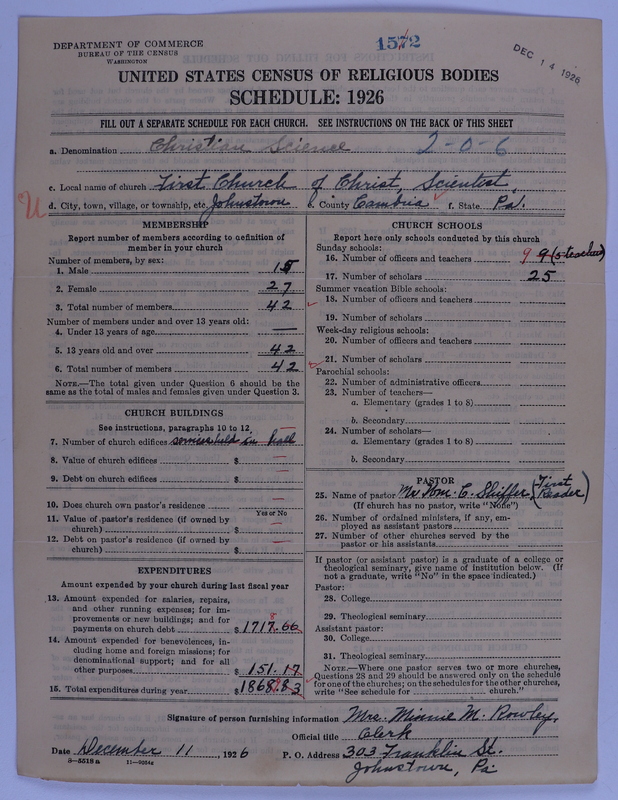 1572
DEC 14 1926
DEPARTMENT OF COMMERCE
BUREAU OF THE CENSUS
WASHINGTON
UNITED STATES CENSUS OF RELIGIOUS BODIES
SCHEDULE: 1926
FILL OUT A SEPARATE SCHEDULE FOR EACH CHURCH. SEE INSTRUCTIONS ON THE BACK OF THIS SHEET
a. Denomination Christian Science 2-0-6
c. Local name of church First Church of Christ, Scientist,
d. City, town, village, or township, etc. Johnstown e. County Cambria f. State Pa.
MEMBERSHIP
Report number of members according to definition of
member in your church
Number of members, by sex:
1. Male 15
2. Female 27
3. Total number of members 42
Number of members under and over 13 years old:
4. Under 13 years of age —
5. 13 years old and over 42
6. Total number of members 42
NOTE.—The total given under Question 6 should be the
same as the total of males and females given under Question 3.
CHURCH BUILDINGS
See instructions, paragraphs 10 to 12
7. Number of church edifices services held in hall
8. Value of church edifices $ —
9. Debt on church edifices $ —
10. Does church own pastor's residence —
Yes or No
11. Value of pastor's residence (if owned by
church) $ —
12. Debt on pastor's residence (if owned by
church) $ —
EXPENDITURES
Amount expended by your church during last fiscal year
13. Amount expended for salaries, repairs,
and other running expenses; for im-
provements or new buildings; and for
payments on church debt $ 1717.66
8
14. Amount expended for benevolences, in-
cluding home and foreign missions; for
denominational support; and for all
other purposes $ 151.17
15. Total expenditures during year $ 1868.83
CHURCH SCHOOLS
Report here only schools conducted by this church
Sunday schools:
16. Number of officers and teachers 9 9 (5 teachers)
17. Number of scholars 25
Summer vacation Bible schools:
18. Number of officers and teachers
19. Number of scholars
Week-day religious schools:
20. Number of officers and teachers
21. Number of scholars
Parochial schools:
22. Number of administrative officers
23. Number of teachers—
a. Elementary (grades 1 to 8)
b. Secondary
24. Number of scholars—
a. Elementary (grades 1 to 8)
b. Secondary
PASTOR
25. Name of pastor Mr. Wm. C. Shiffer (First Reader)
(If church has no pastor, write "None")
26. Number of ordained ministers, if any, em-
ployed as assistant pastors
27. Number of other churches served by the
pastor or his assistants
If pastor (or assistant pastor) is a graduate of a college or
theological seminary, give name of institution below. (If
not a graduate, write "No" in the space indicated.)
Pastor:
28. College
29. Theological seminary
Assistant pastor:
30. College
31. Theological seminary
NOTE.—Where one pastor serves two or more churches,
Questions 28 and 29 should be answered only on the schedule
for one of the churches; on the schedules for the other churches,
write "See schedule for church."
Signature of person furnishing information Mrs. Minnie M. Rowley,
Official title Clerk
Date December 11, 1926 P. O. Address 303 Franklin St.
8-5518 a 11-9064c Johnstown, Pa